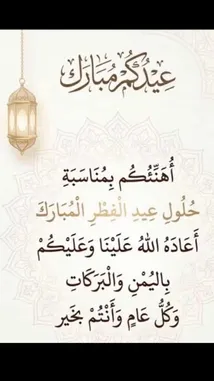 عِيدُكُمْ مُبَارَك
أُهَنِّئُكُم بِمُنَاسَبَةِ
حُلُولِ عِيدِ الْفِطْرِ الْمُبَارَكَ
أَعَادَهُ اللهُ عَلَيْنَا وَعَلَيْكُمْ
بِاليُمْنِ وَالْبَرَكَاتِ
وَكُلُّ عَامٍ وَأَنْتُمْ بِخَير